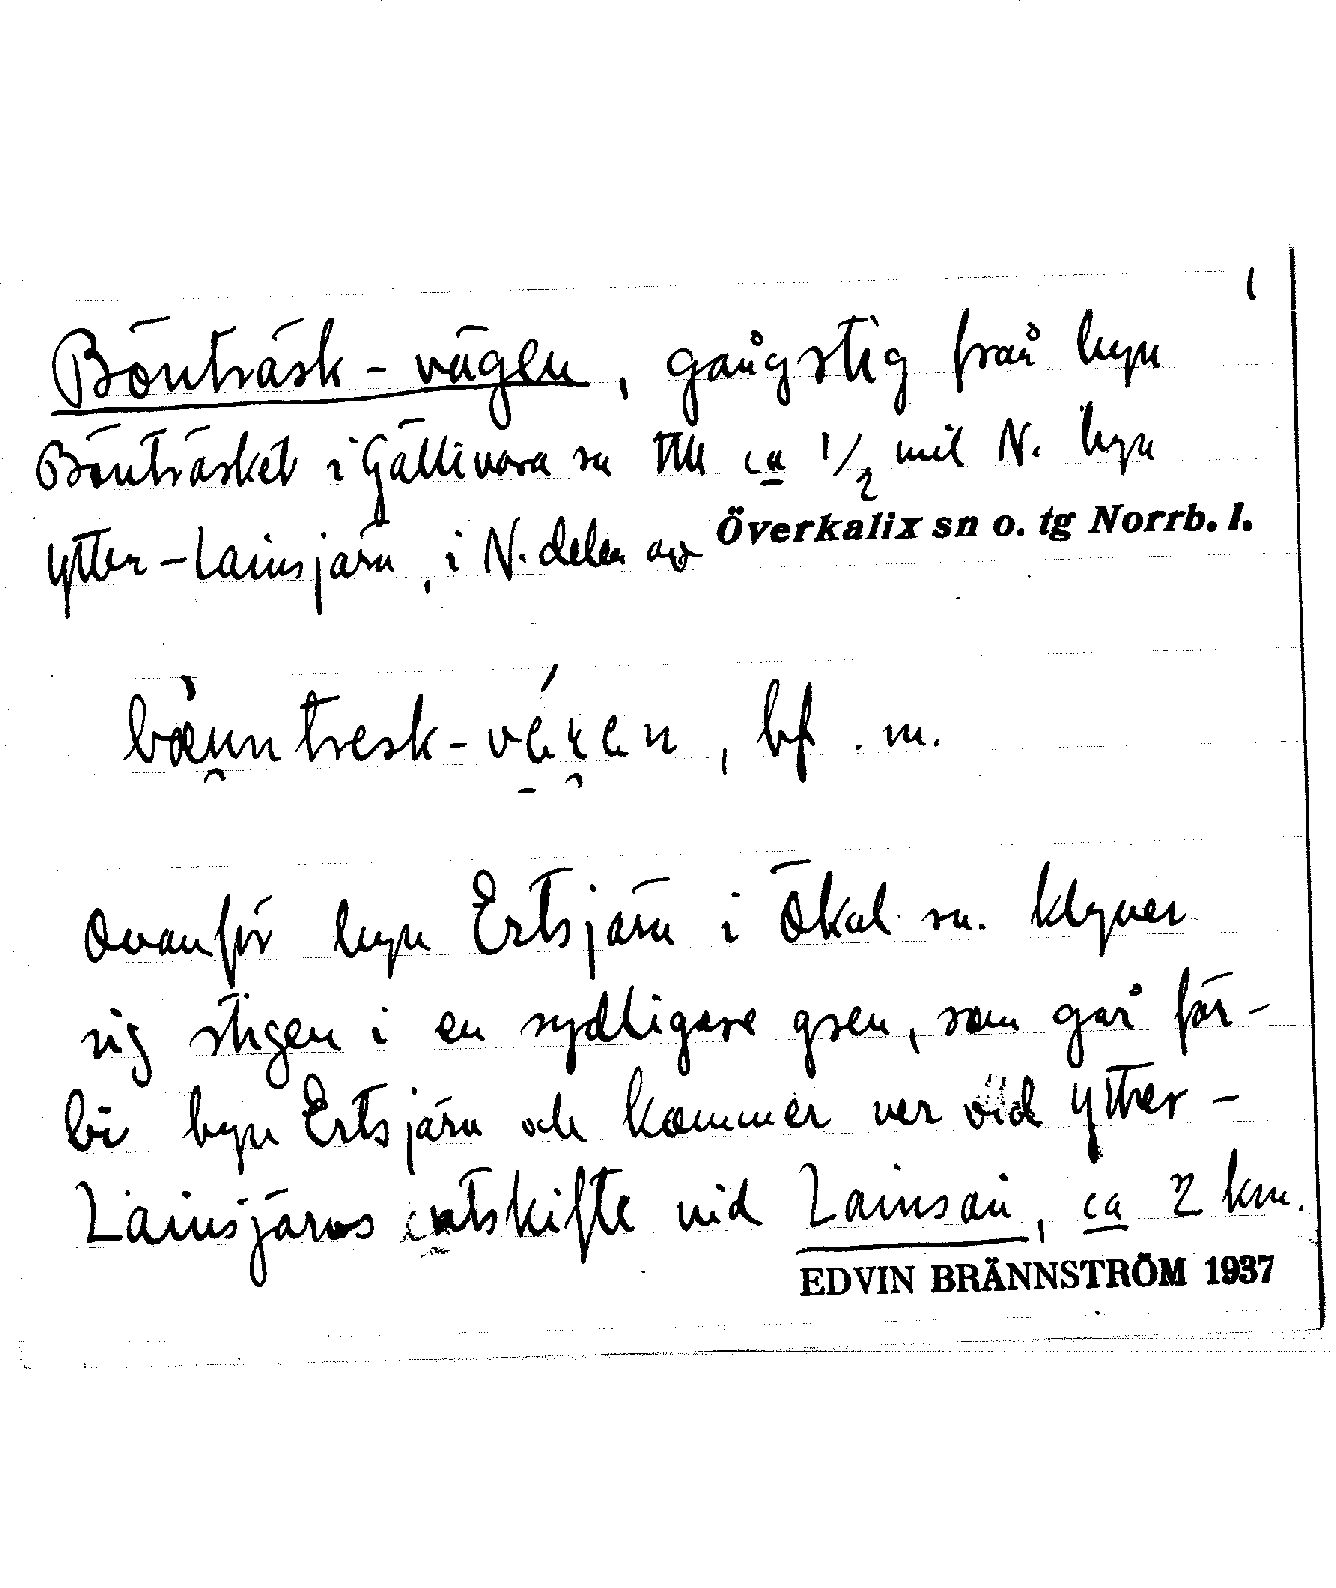 1
Bönträsk-vägen, gångstig från byn
Bönträsket i Gällivara sn till ca 1/2 mil N. byn
Ytter-Lainsjärv, i N. delen av Överkalix sn o. tg Norrb. l.
bænntresk-, bf. m.
Ovanför byn Ertsjärv i Ökal. sn. klyver
sig stigen i en sydligare gren, som går för-
bi byn Ertsjärv och kommer ner vid Ytter-
Lainsjärvs utskifte vid Lainsån, ca 2 km.
EDVIN BRÄNNSTRÖM 1937